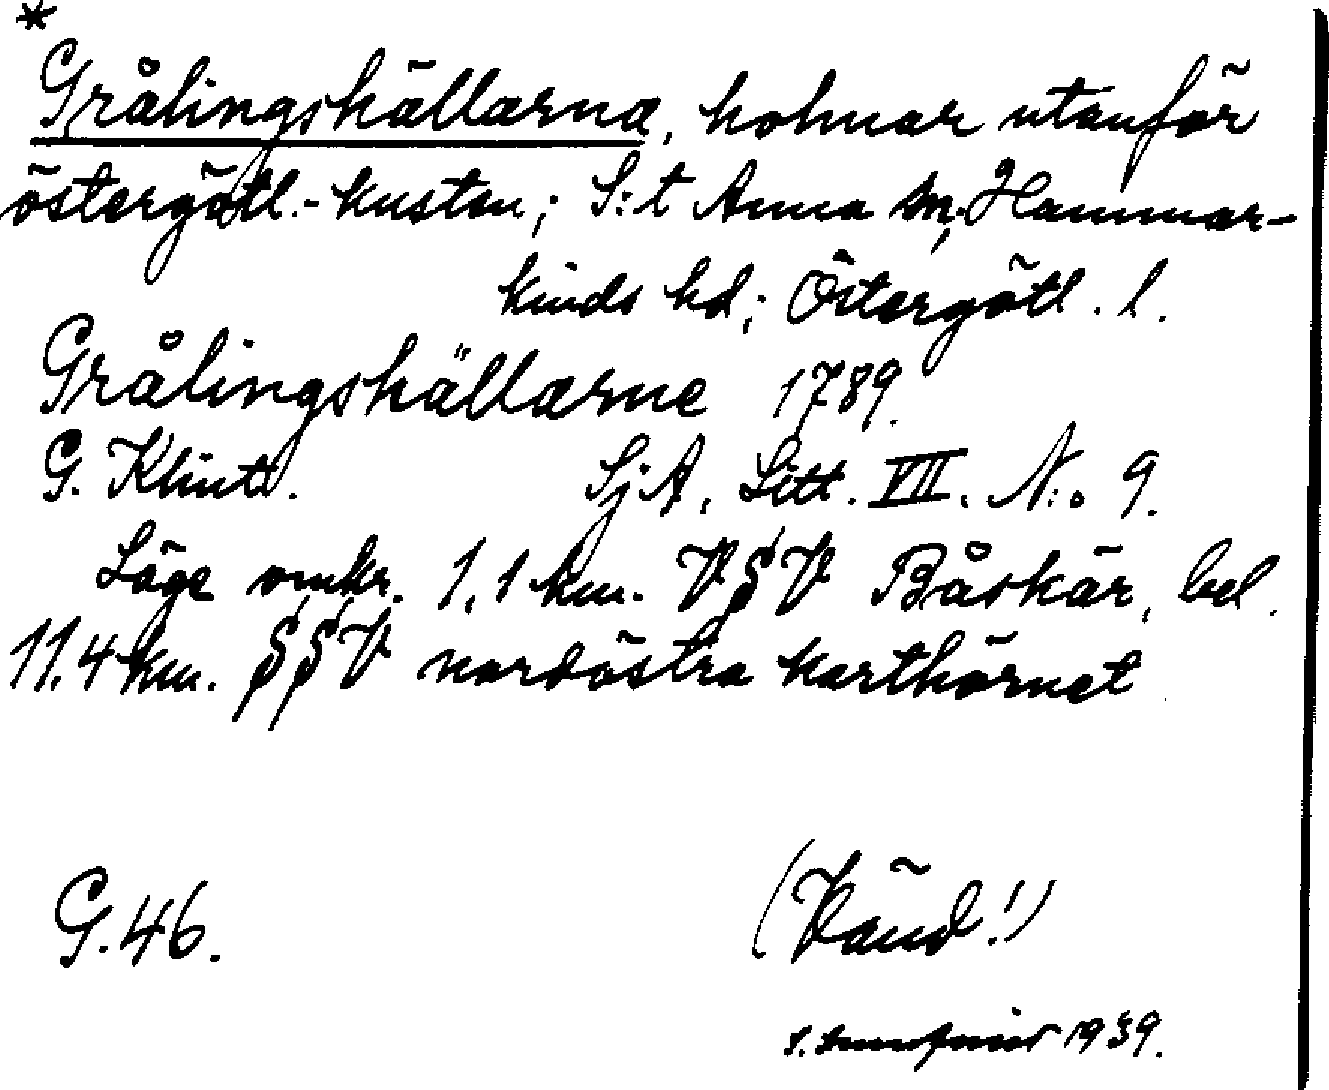 *
Grålingshällarna, holmar utanför
östergötl.-kusten; S:t Anna sn, Hammar-
kinds hd; Östergötl. l.
Grålingshällarne 1789.
G. Klint. SjA, Litt. VII. N:o 9.
Läge omkr. 1,1 km. VSV Båskär, bel.
11,4 km. SSV nordöstra karthörnet
G.46. (Vänd!)
1939.